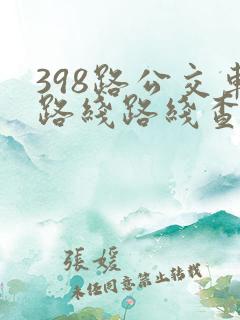 398路公交車
路綫路綫查
張媛
未任同意禁止轉載